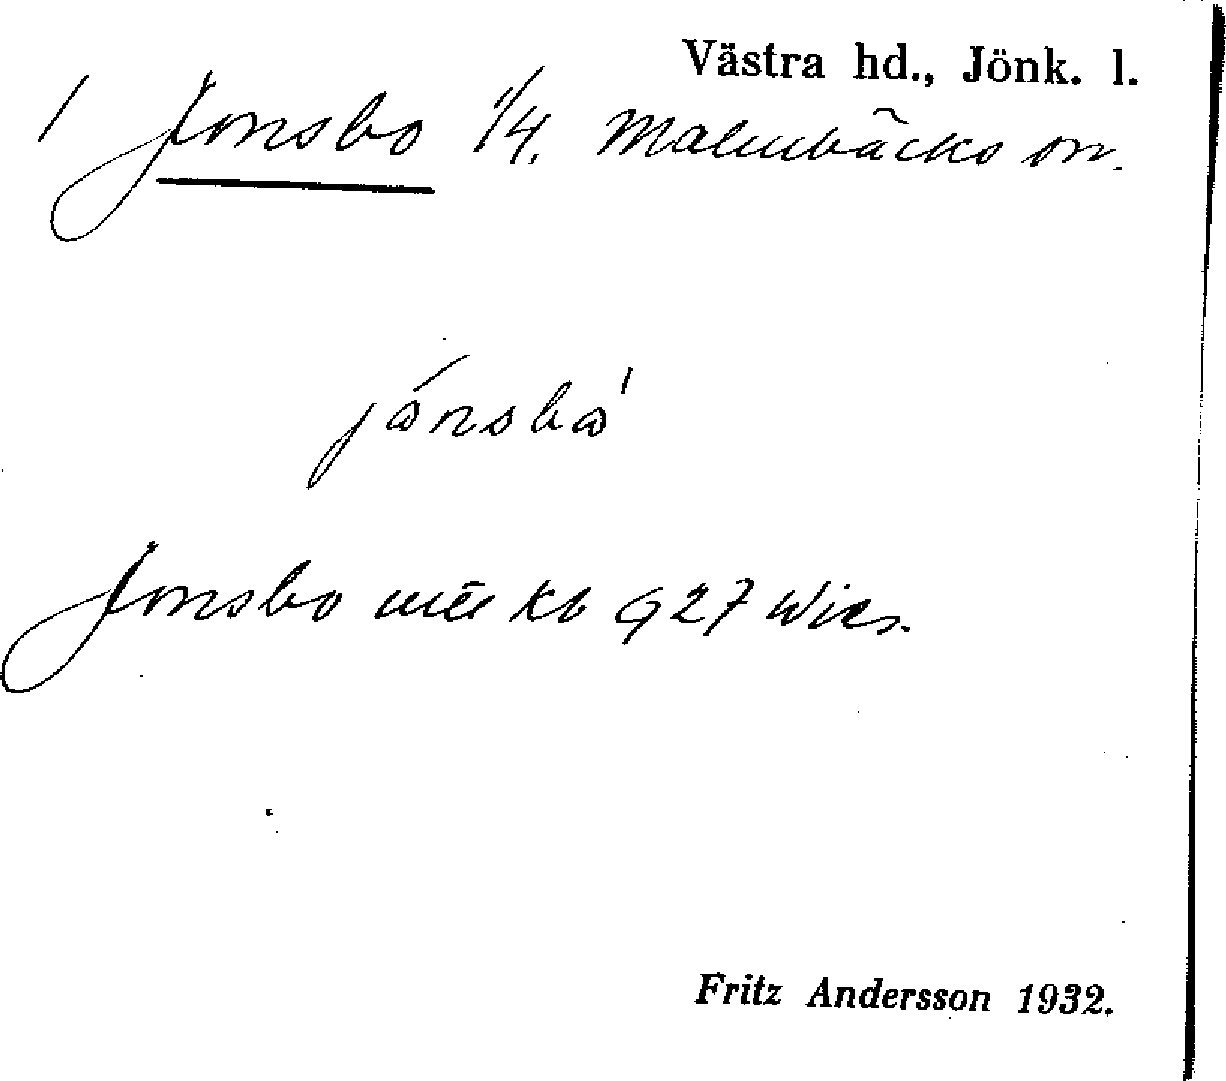 Västra hd., Jönk. l.
1 Jonsbo 1/4. Malmbäcks sn.
jónsbo'
Jonsbo Kb 927
Fritz Andersson 1932.